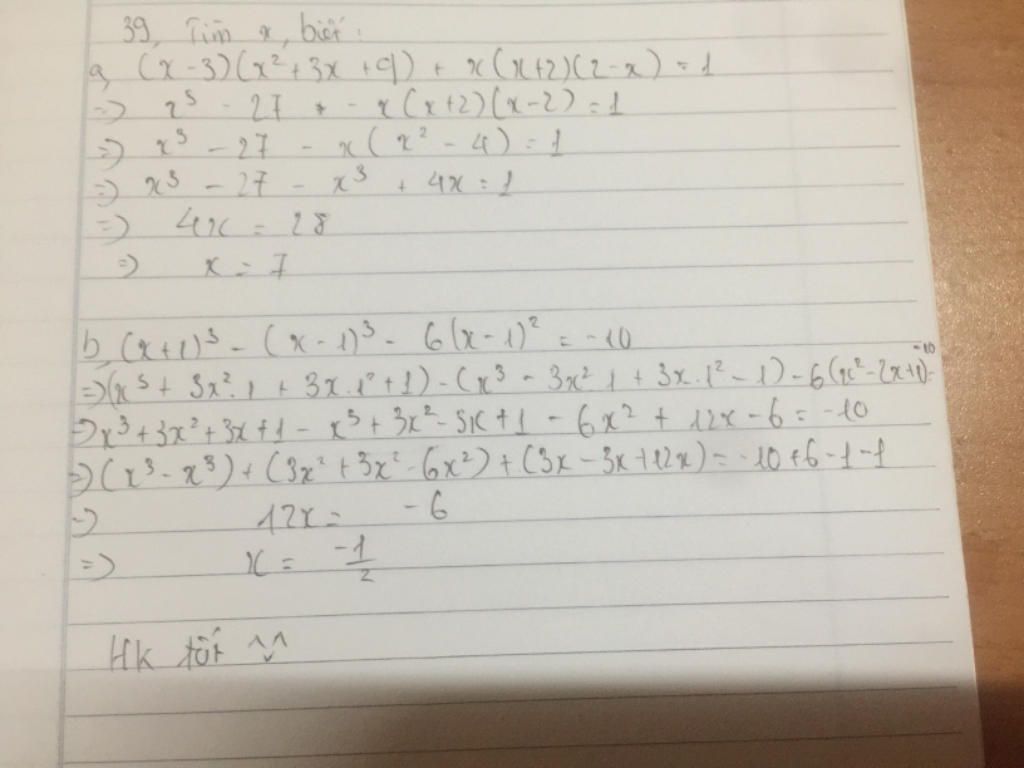 39, Tìm x, biết:
a, (x-3)(x² + 3x + 9) + x(x+2)(2-x) = 1
=> x³ - 27 - x(x+2)(x-2) = 1
=> x³ - 27 - x(x² - 4) = 1
=> x³ - 27 - x³ + 4x = 1
=> 4x = 28
=> x = 7
b, (x+1)³ - (x-1)³ - 6(x-1)² = -10
=> (x³ + 3x².1 + 3x.1² + 1) - (x³ - 3x².1 + 3x.1² - 1) - 6(x² - 2x + 1) = -10
=> x³ + 3x² + 3x + 1 - x³ + 3x² - 3x + 1 - 6x² + 12x - 6 = -10
=> (x³ - x³) + (3x² + 3x² - 6x²) + (3x - 3x + 12x) = -10 + 6 - 1 - 1
=> 12x = -6
=> x = -1/2
Hk tốt ^v^